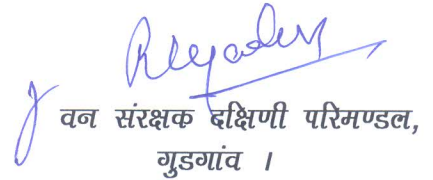 वन संरक्षक दक्षिणी परिमण्डल,
गुडगांव ।